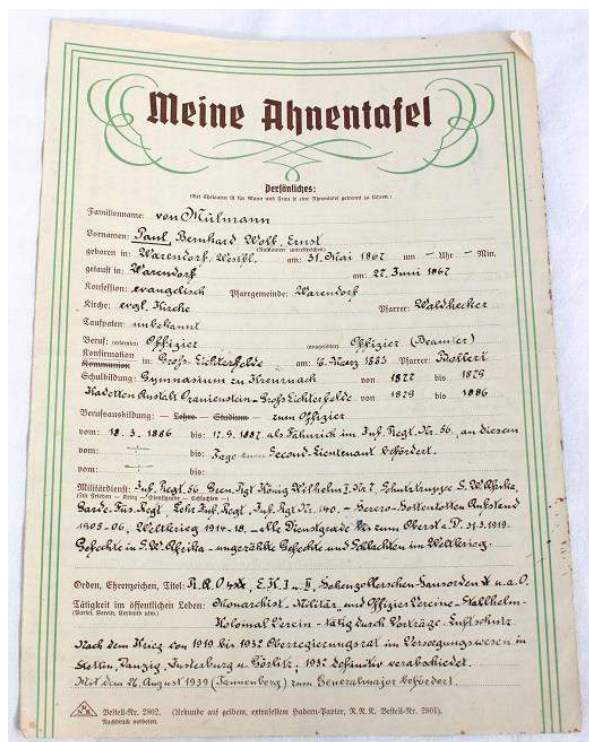 Meine Ahnentafel
Persönliches:
(Bei Eheleuten ist für Mann und Frau je eine Ahnentafel getrennt zu führen.)
Familienname: von Mülmann
Vornamen: Paul, Bernhard Wolf, Ernst
(Rufnamen unterstreichen)
geboren in: Warendorf, Westfl. am: 31. Mai 1867 um – Uhr – Min.
getauft in: Warendorf am: 27. Juni 1867
Konfession: evangelisch Pfarrgemeinde: Warendorf
Kirche: evgl. Kirche Pfarrer: Waldhecker
Taufpaten: unbekannt
Beruf: Offizier Offizier (Beamter)
Konfirmation
Kommunion in: Groß-Lichterfelde am: 16. März 1883 Pfarrer:
Schulbildung: Gymnasium zu Kreuznach von 1877 bis 1879
Kadetten Anstalt Oranienstein-Groß Lichterfelde von 1879 bis 1886
Berufsausbildung: – Lehre – Studium – zum Offizier
vom: 18.3.1886 bis: 17.9.1887 als Fähnrich im Inf. Regt. Nr. 56, an diesem
vom: bis: Tage zum Second-Lieutenant befördert.
vom: bis:
Militärdienst: Inf. Regt. 56, Gren. Rgt König Wilhelm I. Nr. 7, Schutztruppe S.W. Afrika,
(Im Frieden – Krieg – Dienstgrade – Schlachten –)
Garde-Füs. Regt, Lehr Inf. Regt, Inf. Rgt Nr. 140. – Herero-Hottentotten Aufstand
1905-06, Weltkrieg 1914-18. – alle Dienstgrade bis zum Oberst a.D. 31.3.1919.
Gefechte in S.W. Afrika – ungezählte Gefechte und Schlachten im Weltkrieg.
Orden, Ehrenzeichen, Titel: R.A.O. E.K. I u. II, Hohenzollerschen Hausorden u.a.O.
Tätigkeit im öffentlichen Leben: Monarchist – Militär, und Offizier Vereine – Stahlhelm –
(Partei, Verein, Verband usw.)
Kolonial Verein – tätig durch Vorträge. Luftschutz.
Nach dem Krieg von 1919 bis 1932 Oberregierungsrat im Versorgungswesen in
Stettin, Danzig, Insterburg u. Görlitz; 1932 definitiv verabschiedet.
Mit dem 26. August 1939 (Tannenberg) zum Generalmajor befördert.
RNK Bestell-Nr. 2802. (Urkunde auf gelbem, extrafestem Hadern-Papier, R.N.K. Bestell-Nr. 2801).
Nachdruck verboten.